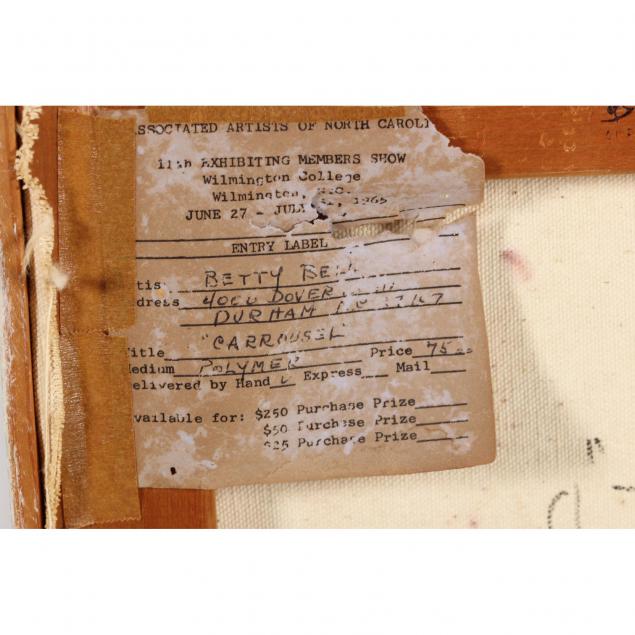 SSOCIATED ARTISTS OF NORTH CAROLI
11th EXHIBITING MEMBERS SHOW
Wilmington College
Wilmington, N.C.
JUNE 27 - JULY 1965
ENTRY LABEL
tis BETTY BEL
dress DOVER
DURHAM
itle "CARROUSEL" Price 75
edium POLYMER
elivered by Hand Express Mail
vailable for: $250 Purchase Prize
$50 Purchase Prize
$25 Purchase Prize